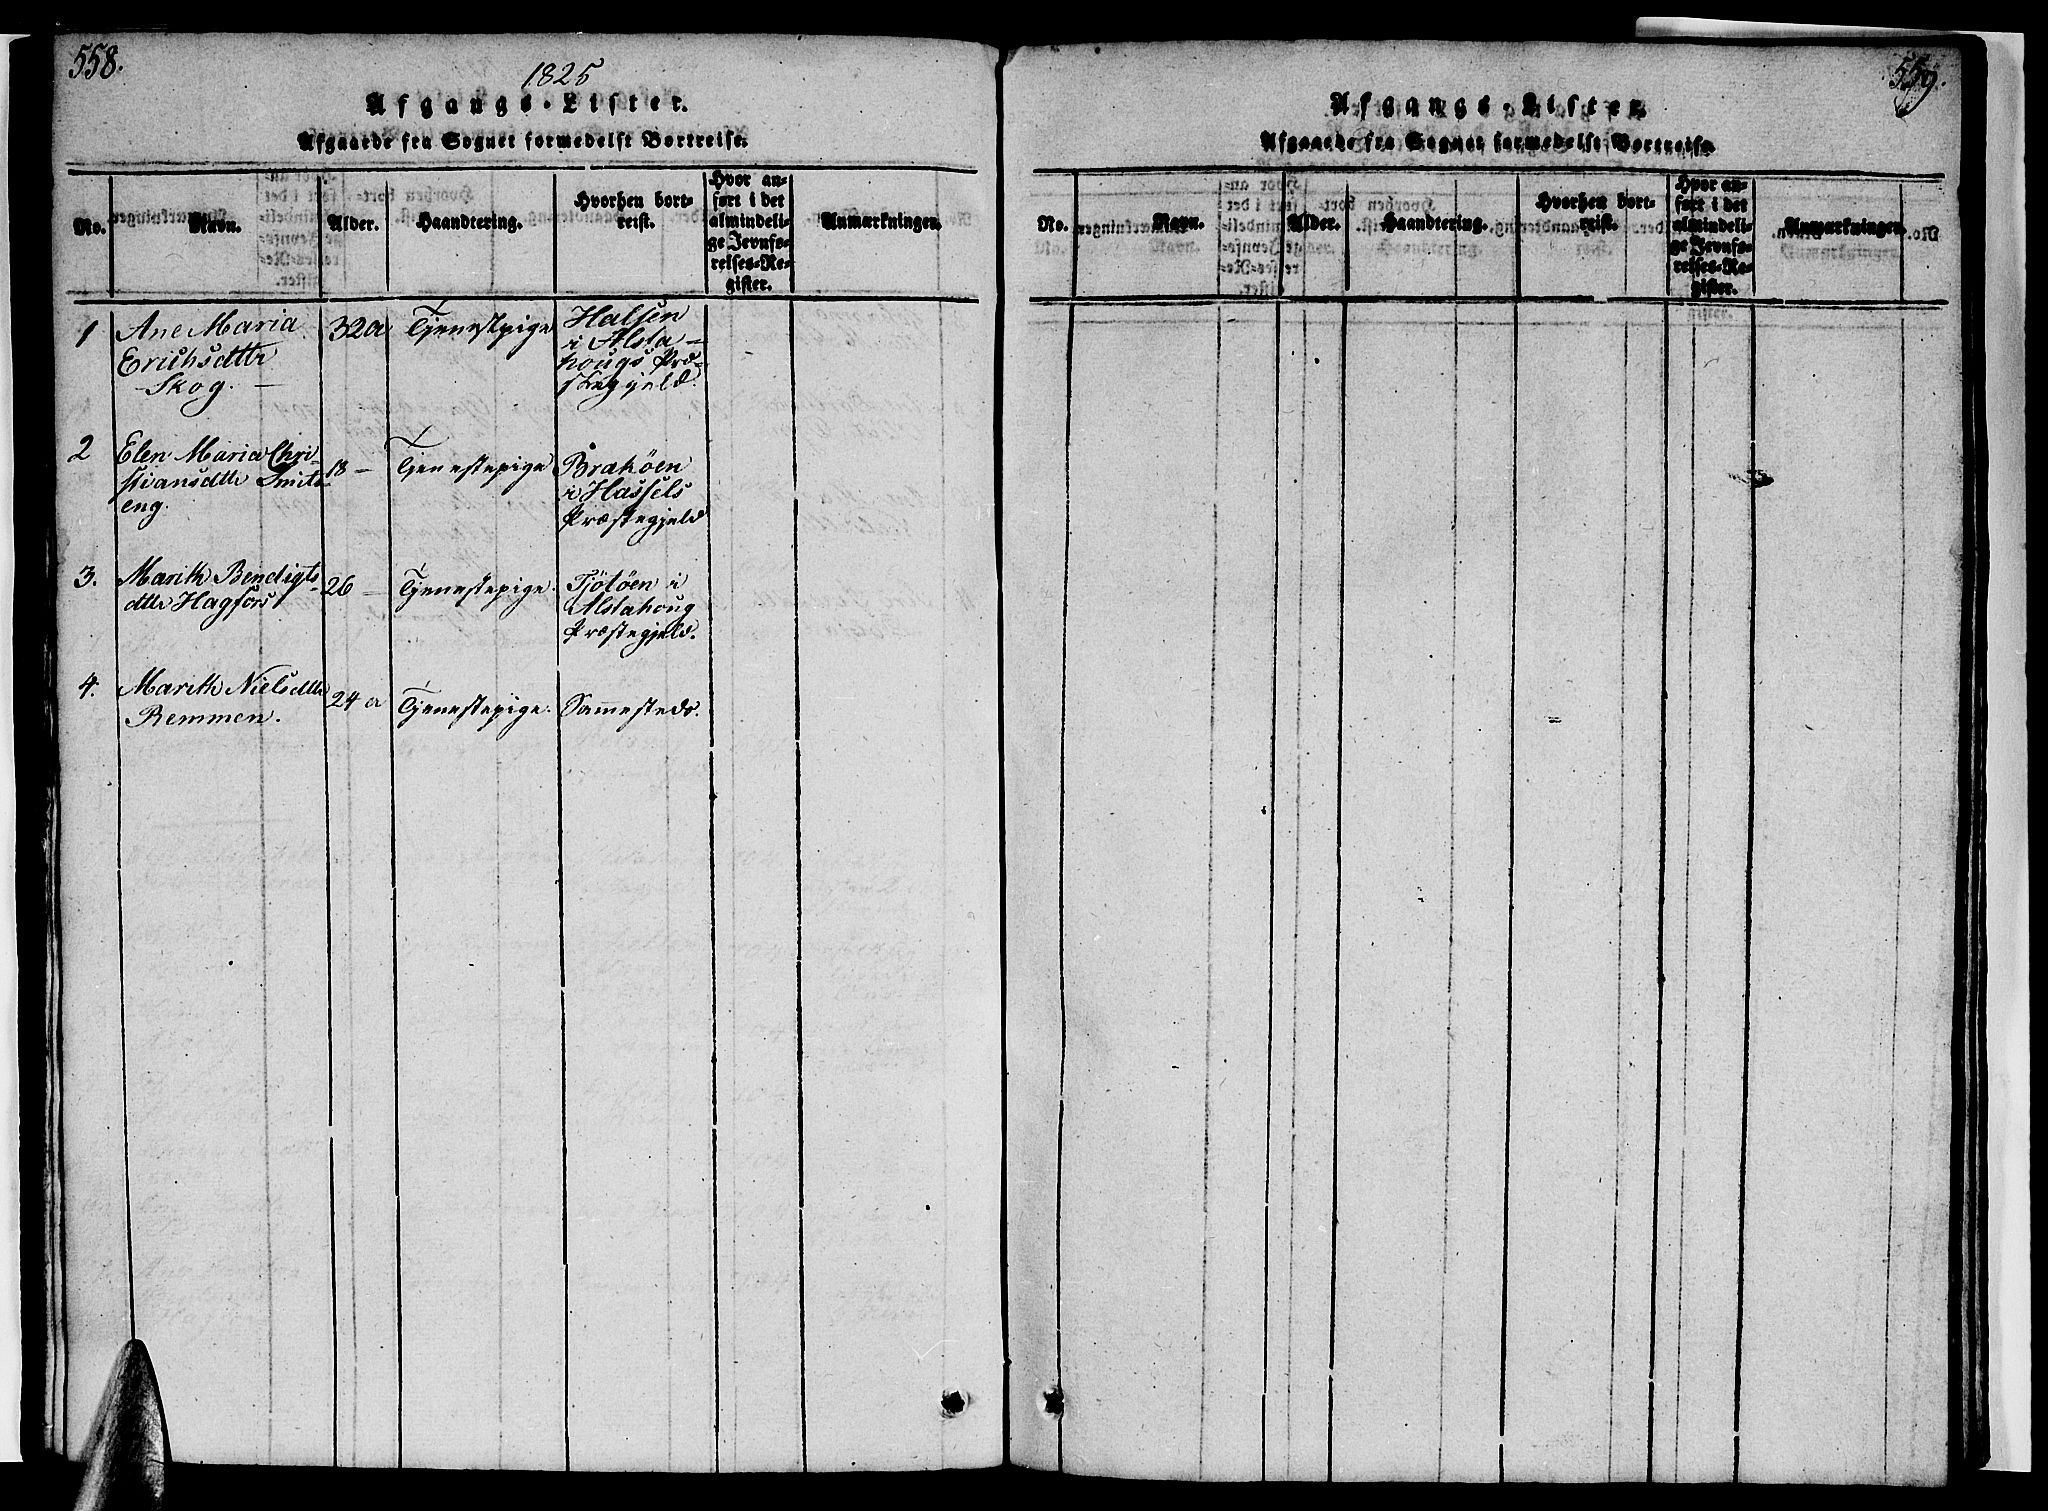 558.
1825
Afgangs-Lister.
Afgaaede fra Sognet formedelst Bortreise.
No.
Navn.
Alder.
Haandtering.
Hvorhen bort-
reist.
Hvor an-
ført i det
almindeli-
ge Jevnfø-
relses-Re-
gister.
Anmærkninger.
1
Ane Maria
Erichsdttr
Skog. —
32 a
Tjenestpige
Halsen
i Alsta-
hougs Præ-
stegjeld.
2
Elen Maria Chri-
stiansdttr Smit-
eng.
18 —
Tjenestepige
i Hassels
Præstegjeld
3.
Marith Bendigts-
dttr Hagfors
26 —
Tjenestepige.
Tjötöen i
Alstahoug
Præstegjeld.
4.
Marith Nielsdttr
Remmen.
24 a
Tjenestepige.
Sammesteds.
559.
Afgangs-Lister.
Afgaaede fra Sognet formedelst Bortreise.
No.
Navn.
Alder.
Haandtering.
Hvorhen bort-
reist.
Hvor an-
ført i det
almindeli-
ge Jevnfø-
relses-Re-
gister.
Anmærkninger.